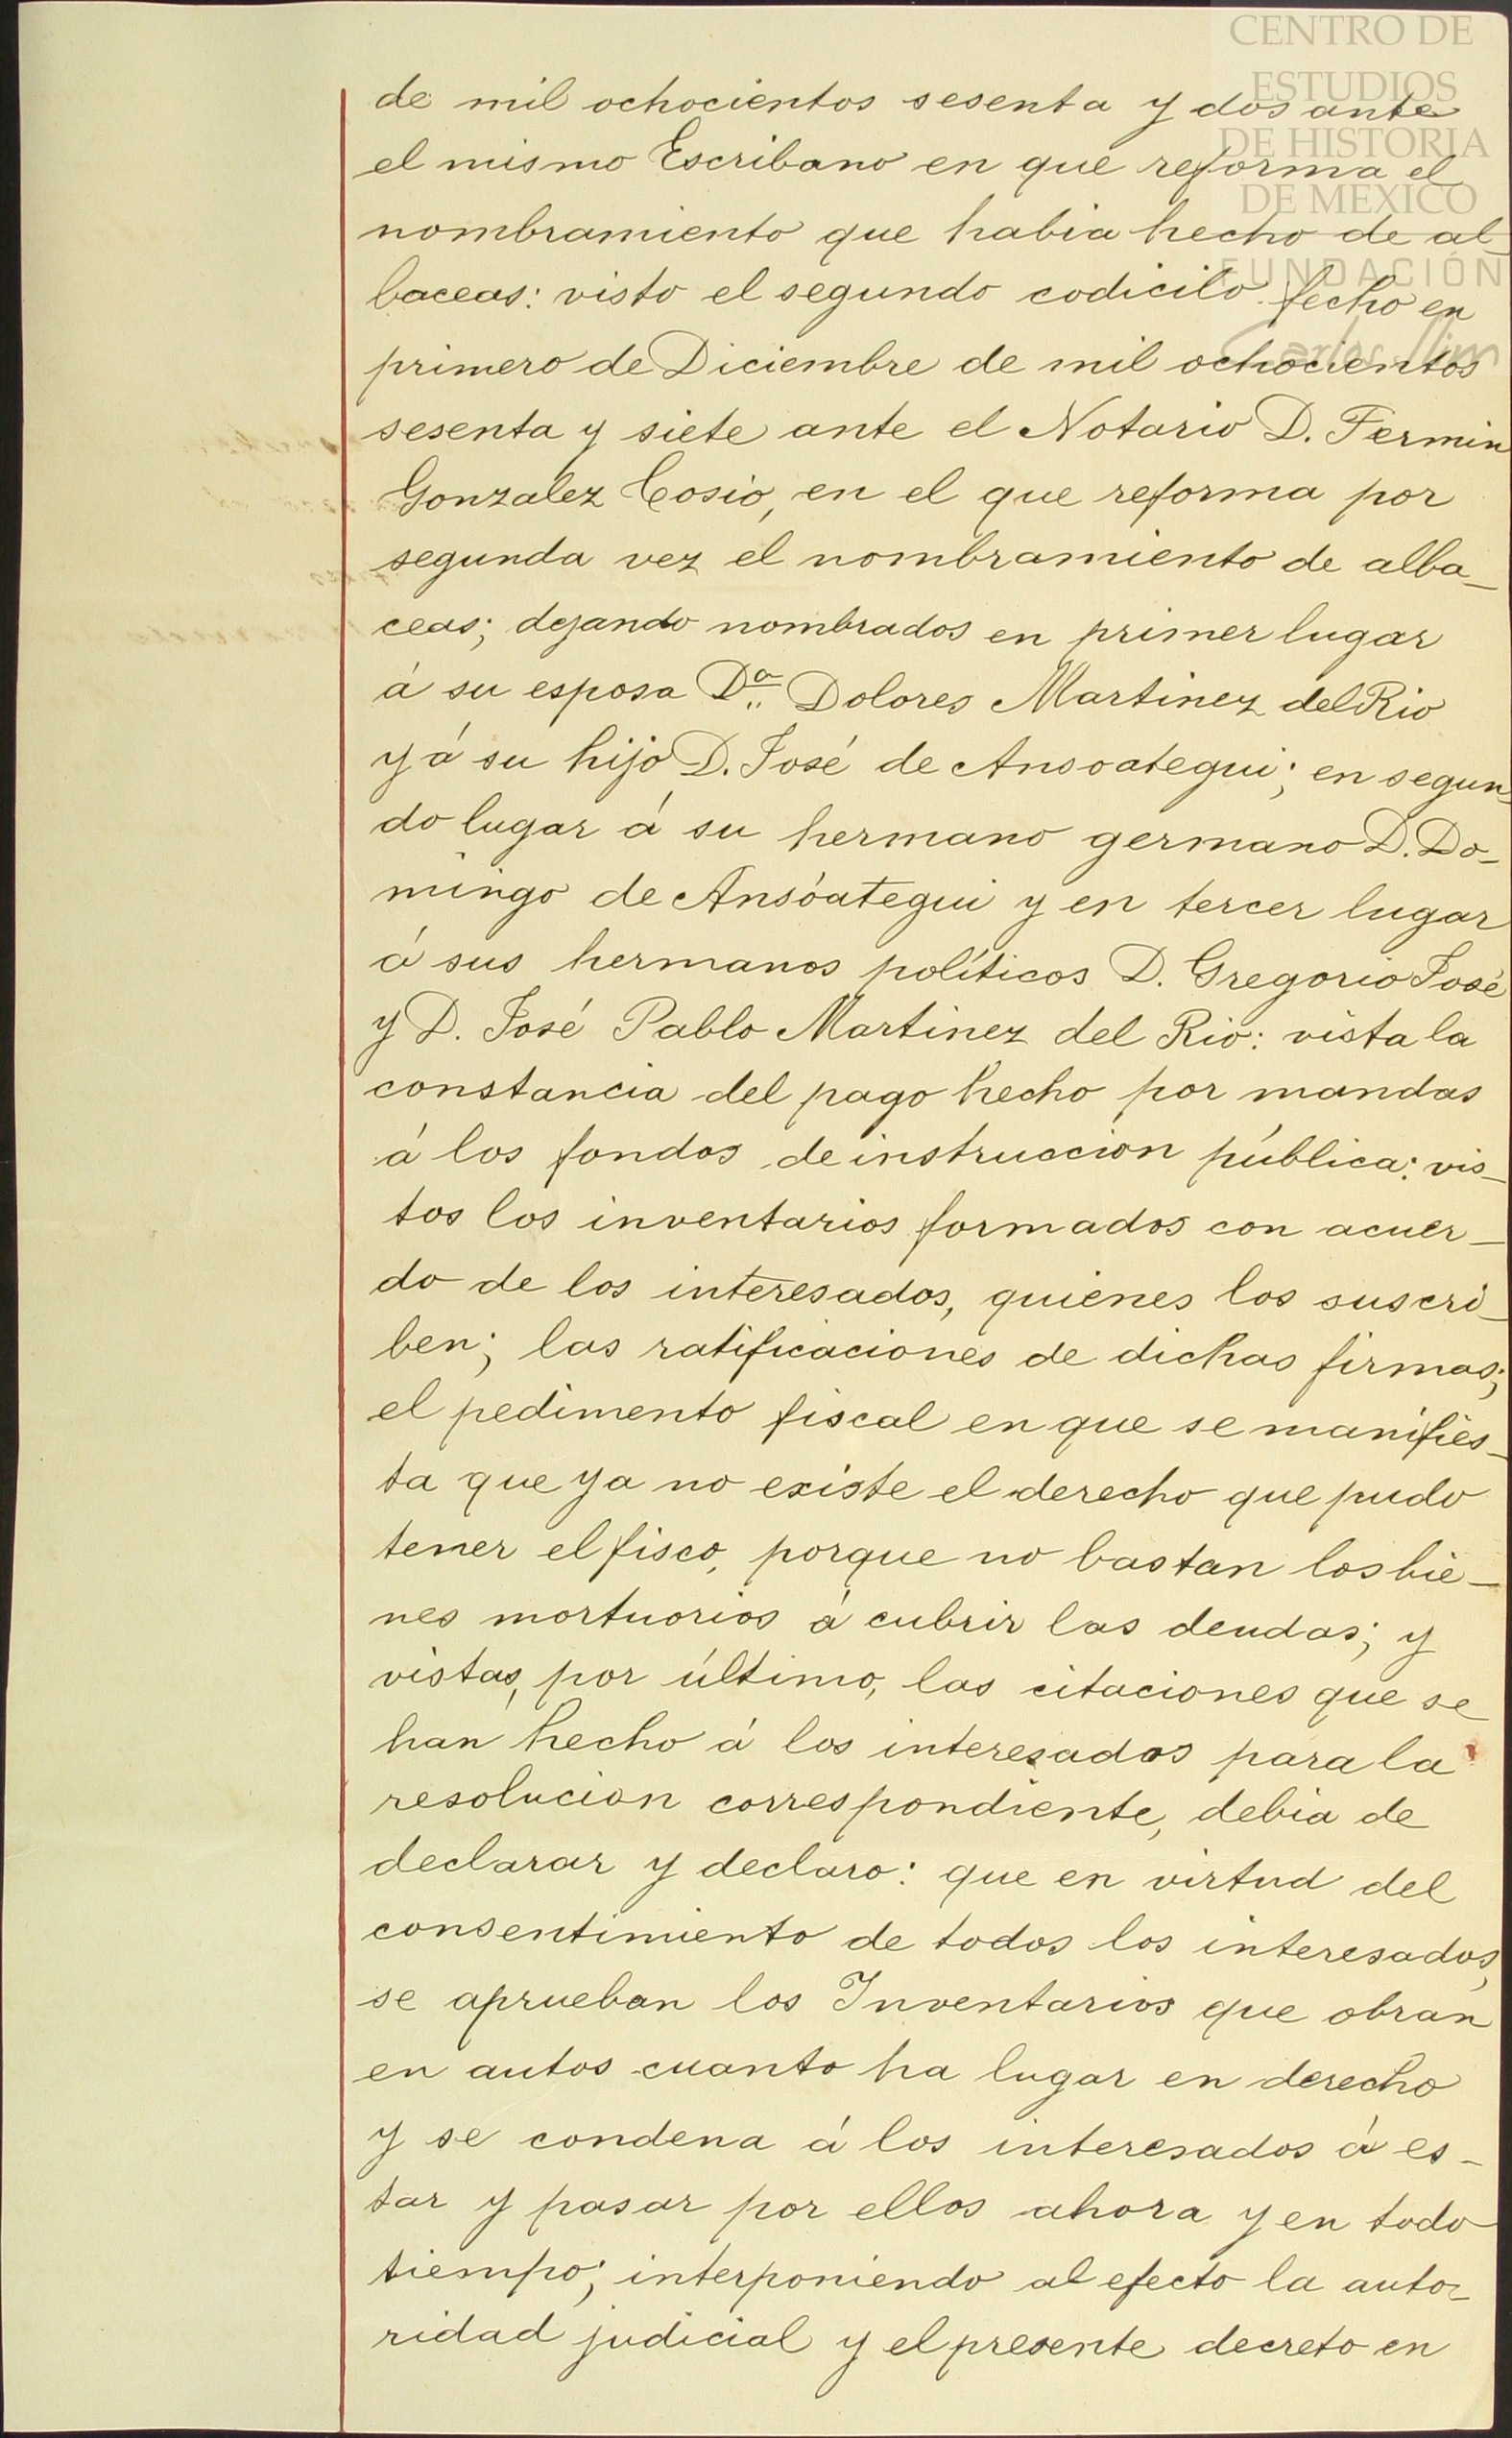 CENTRO DE
ESTUDIOS
DE HISTORIA
DE MEXICO
FUNDACIÓN
Carlos Slim
de mil ochocientos sesenta y dos ante
el mismo Escribano en que reforma el
nombramiento que habia hecho de al-
baceas: visto el segundo codicilo fecho en
primero de Diciembre de mil ochocientos
sesenta y siete ante el Notario D. Fermin
Gonzalez Cosio, en el que reforma por
segunda vez el nombramiento de alba-
ceas; dejando nombrados en primer lugar
á su esposa Dª Dolores Martinez del Rio
y á su hijo D. José de Ansoategui; en segun-
do lugar á su hermano germano D. Do-
mingo de Ansóategui y en tercer lugar
á sus hermanos políticos D. Gregorio José
y D. José Pablo Martinez del Rio: vista la
constancia del pago hecho por mandas
á los fondos de instruccion pública: vis-
tos los inventarios formados con acuer-
do de los interesados, quienes los suscri-
ben; las ratificaciones de dichas firmas;
el pedimento fiscal en que se manifies-
ta que ya no existe el derecho que pudo
tener el fisco, porque no bastan los bie-
nes mortuorios á cubrir las deudas; y
vistas, por último, las citaciones que se
han hecho á los interesados para la
resolucion correspondiente, debia de
declarar y declaro: que en virtud del
consentimiento de todos los interesados,
se aprueban los Inventarios que obran
en autos cuanto ha lugar en derecho
y se condena á los interesados á es-
tar y pasar por ellos ahora y en todo
tiempo; interponiendo al efecto la auto-
ridad judicial y el presente decreto en